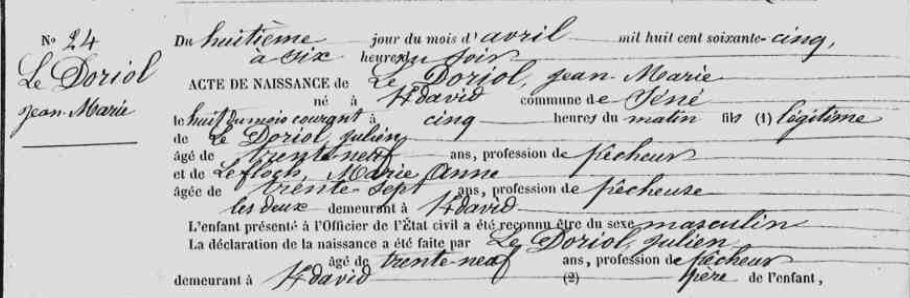 N° 24
Le Doriol
Jean-Marie
Du huitième jour du mois d'avril mil huit cent soixante-cinq,
à six heures du soir
ACTE DE NAISSANCE de Le Doriol, Jean-Marie
né à K/david commune de Séné
le huit du mois courant à cinq heures du matin fils (1) légitime
de Le Doriol, Julien
âgé de trente-neuf ans, profession de pêcheur
et de Lefloch, Marie Anne
âgée de trente-sept ans, profession de pêcheuse
les deux demeurant à K/david
L'enfant présenté à l'Officier de l'État civil a été reconnu être du sexe masculin
La déclaration de la naissance a été faite par Le Doriol, Julien
âgé de trente-neuf ans, profession de pêcheur
demeurant à K/david (2) père de l'enfant,